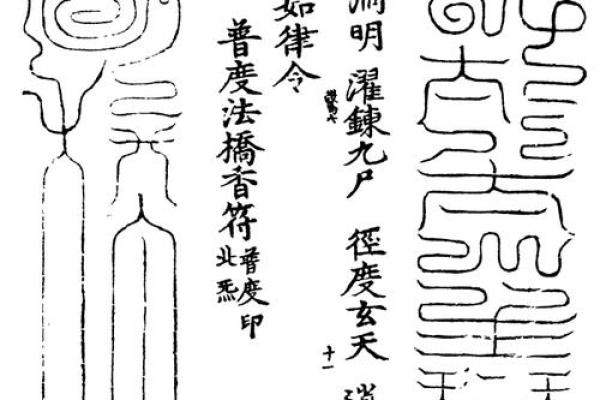 明 濯鍊九尸 徑度玄天
十一
如律令
普度法橋香符
普度印
北炁